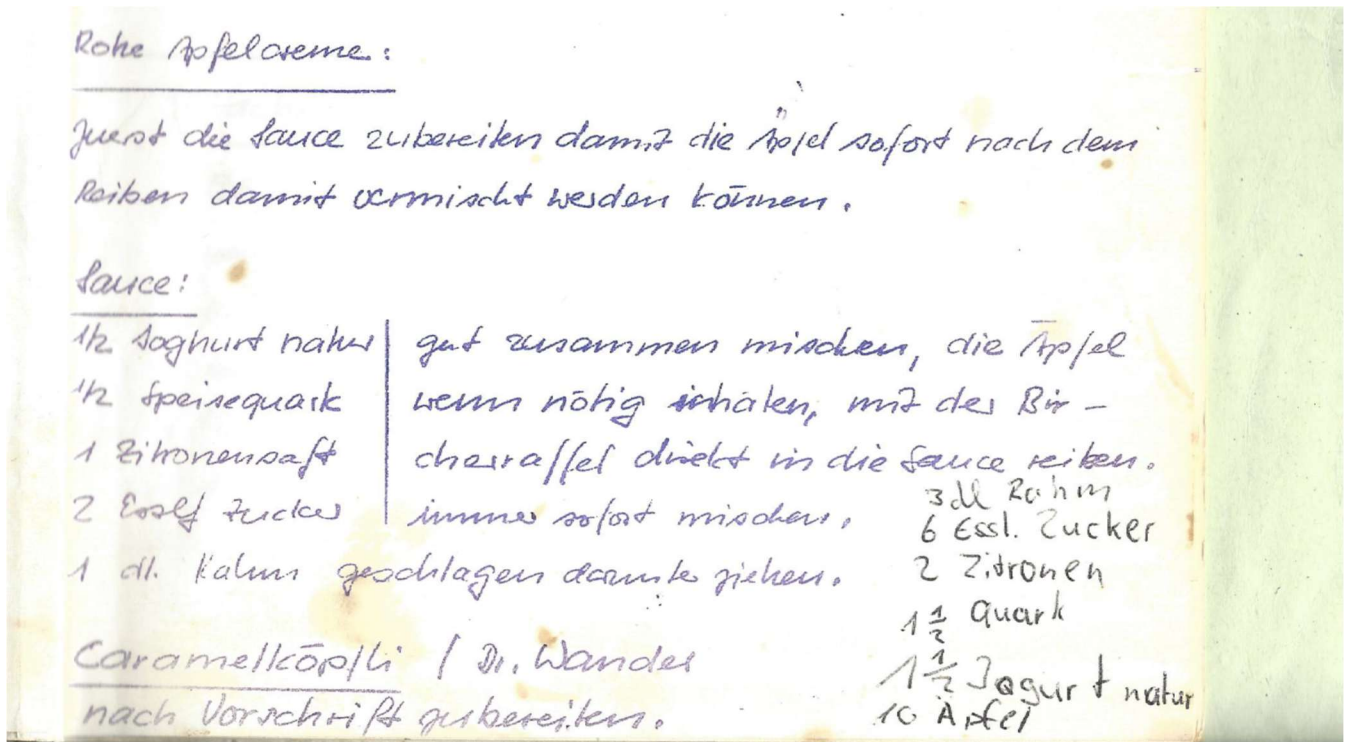 Rohe Apfelcreme:
Zuerst die Sauce zubereiten damit die Äpfel sofort nach dem
Reiben damit vermischt werden können.
Sauce:
1/2 Joghurt natur
1/2 Speisequark
1 Zitronensaft
2 Essl Zucker
gut zusammen mischen, die Äpfel
wenn nötig schälen, mit der Bir-
cherraffel direkt in die Sauce reiben.
immer sofort mischen.
1 dl. Rahm geschlagen darunter ziehen.
3 dl Rahm
6 Essl. Zucker
2 Zitronen
1 1/2 Quark
1 1/2 Jogurt natur
10 Äpfel
Caramelköpfli / Dr. Wander
nach Vorschrift zubereiten.